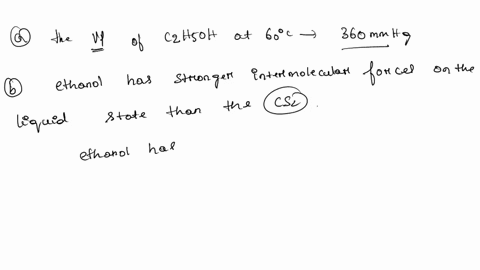 (a) the VP of C2H5OH at 60°C → 360 mm Hg
(b) ethanol has stronger intermolecular forces on the
liquid state than the CS2.
ethanol has